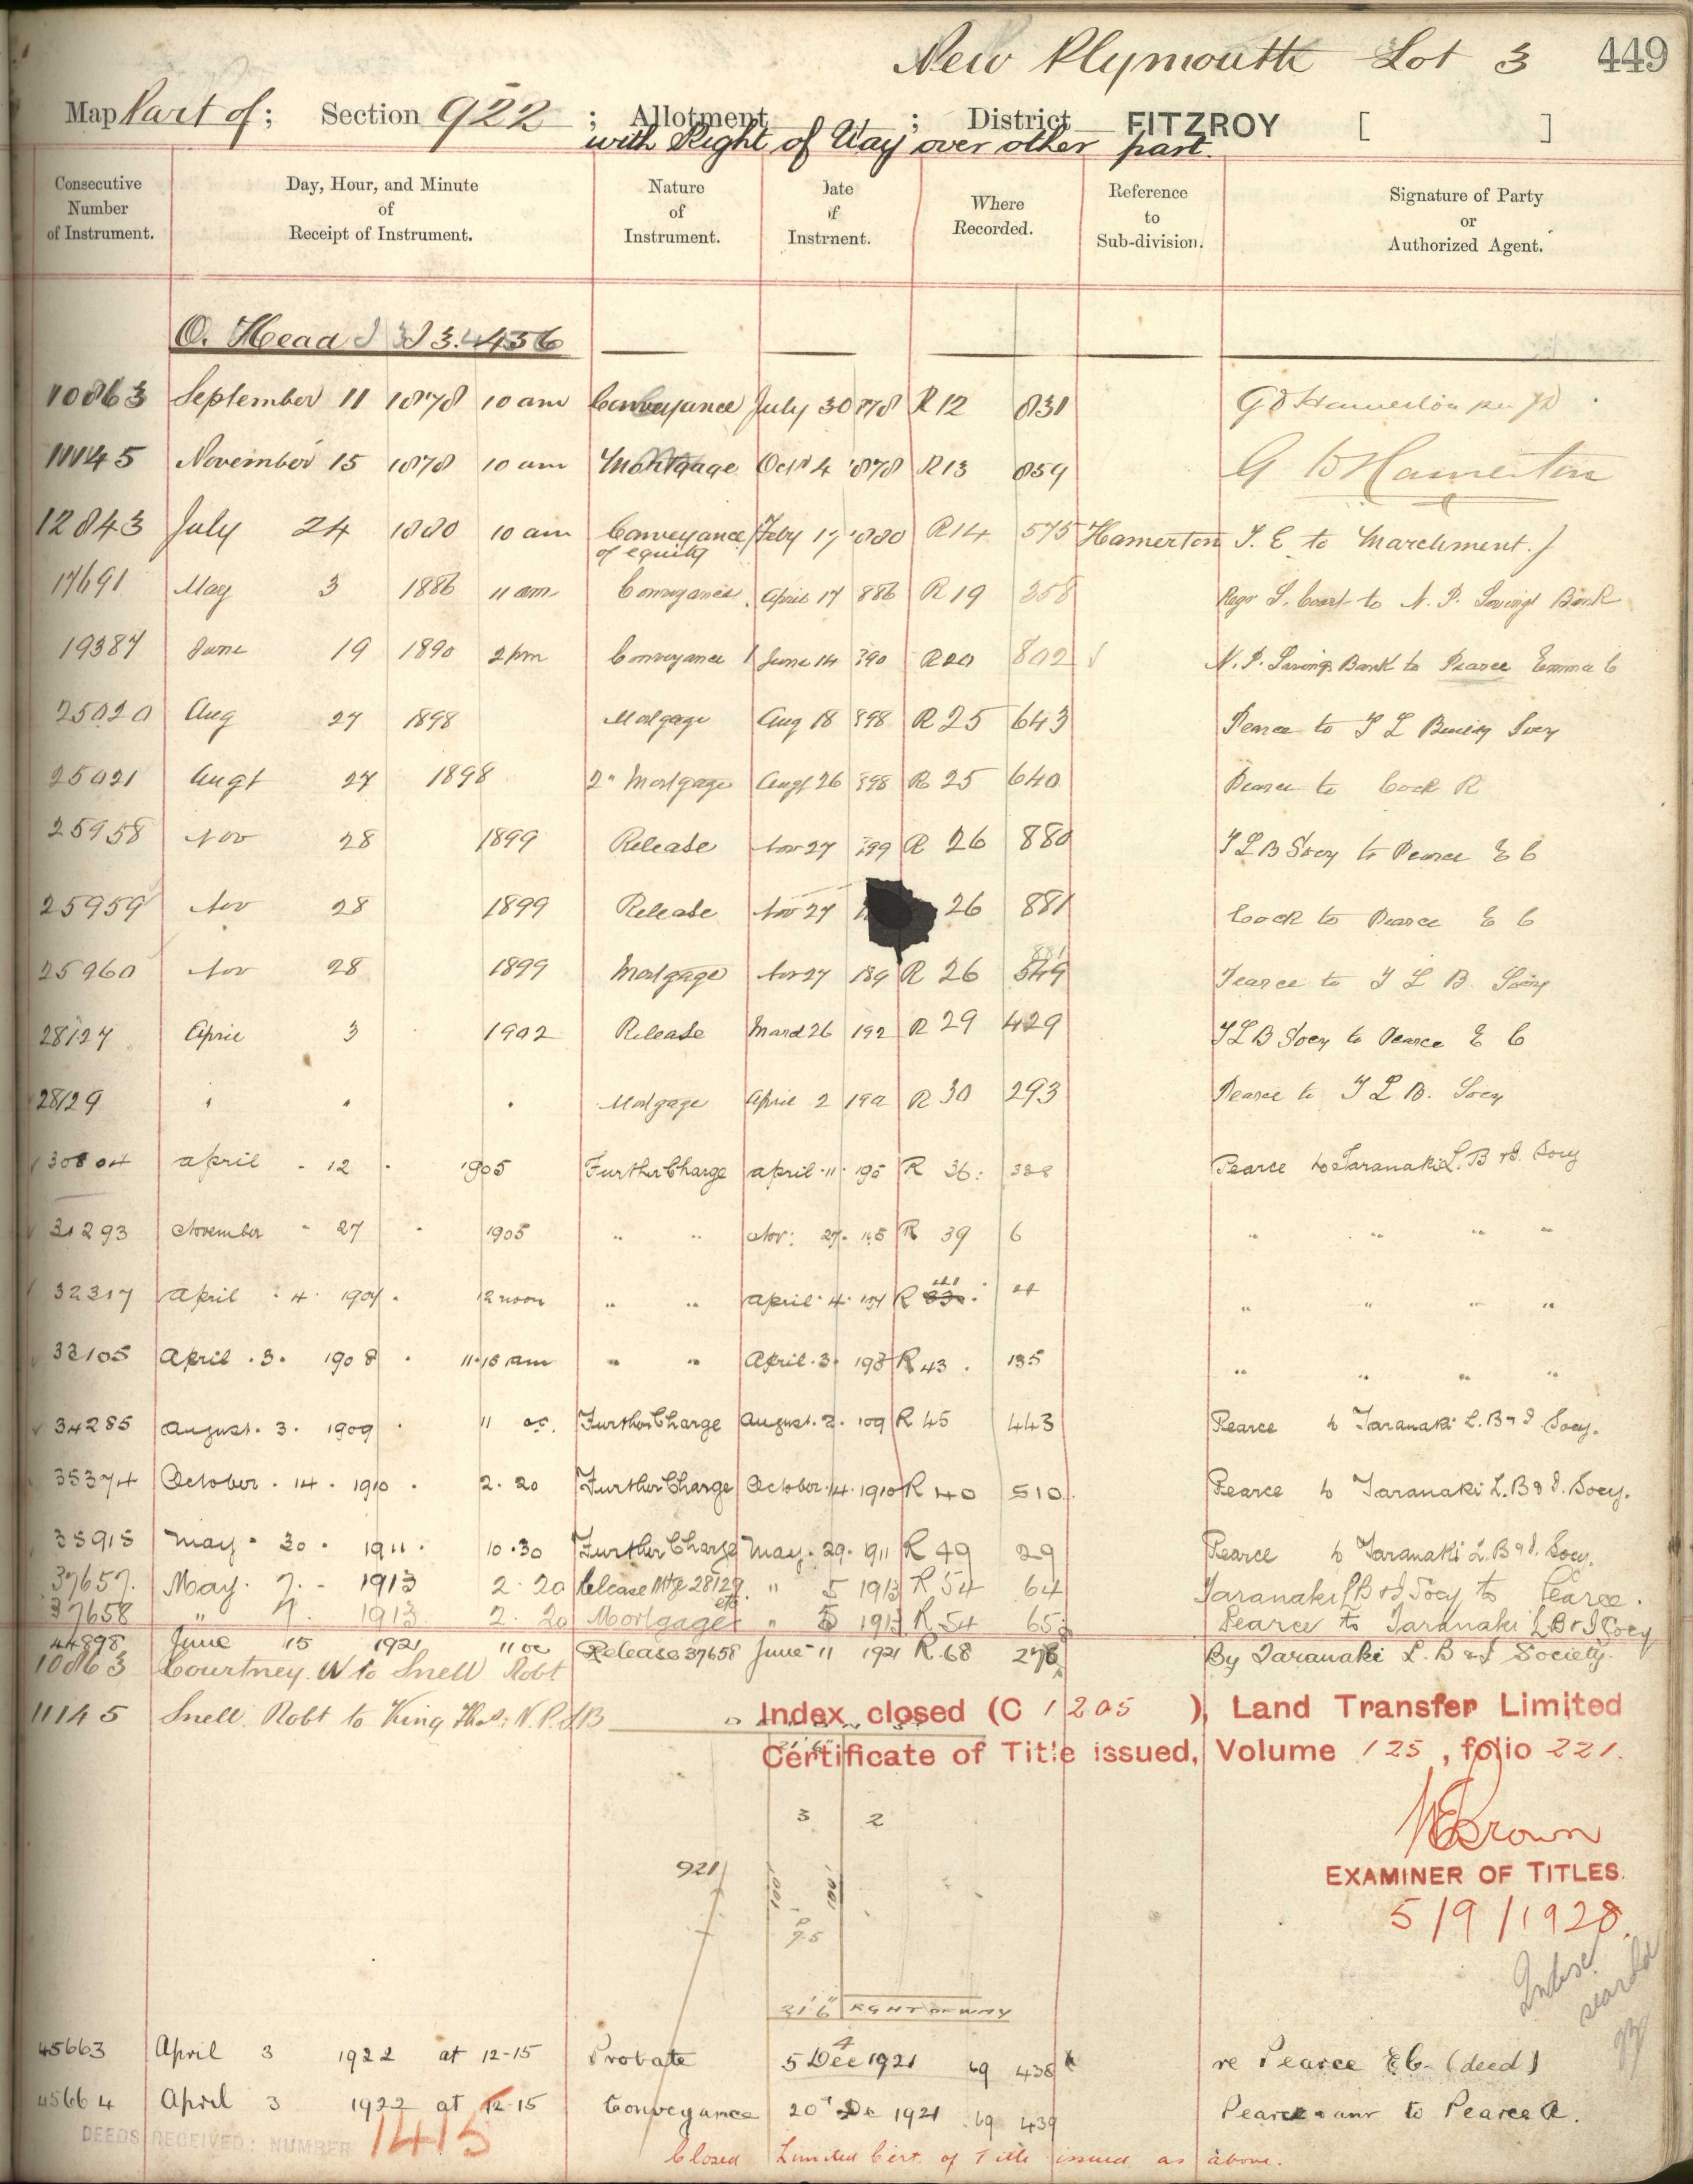 New Plymouth Lot 3 449
Map Part of ; Section 922 ; Allotment ; District FITZROY [ ]
with Right of Way over other part.
Consecutive Number of Instrument. Day, Hour, and Minute of Receipt of Instrument. Nature of Instrument. Date of Instrument. Where Recorded. Reference to Sub-division. Signature of Party or Authorized Agent.
O. Head I 3. 436
10863 September 11 1878 10 am Conveyance July 30 878 R 12 831
11145 November 15 1878 10 am Mortgage Oct 4 1878 R13 859 G W Hamerton
12843 July 24 1880 10 am Conveyance Feby 17 1880 R14 575 Hamerton T. E. to Marchment J
of equity
17691 May 3 1886 11 am Conveyance April 17 886 R 19 358 Regr S. Court to N. P. Savings Bank
19387 June 19 1890 2 pm Conveyance June 14 890 R 20 802 N. P. Savings Bank to Pearce Emma C
25020 Aug 27 1898 Mortgage Aug 18 898 R 25 643 Pearce to T L Building Socy
25021 Augt 27 1898 2" Mortgage Augt 26 898 R 25 640 Pearce to Cock R
25958 Nov 28 1899 Release Nov 27 899 R 26 880 T L B Socy to Pearce E C
25959 Nov 28 1899 Release Nov 27 26 881 Cock to Pearce E C
25960 Nov 28 1899 Mortgage Nov 27 189 R 26 549 881 Pearce to T L B. Socy
28127 April 3 1902 Release March 26 192 R 29 429 T L B Socy to Pearce E C
28129 " " " Mortgage April 2 190 R 30 293 Pearce to T L B. Socy
30804 April - 12 1905 Further Charge April 11 195 R 36 388 Pearce to Taranaki L. B & I. Socy
31293 November - 27 1905 " " Nov: 27 195 R 39 6 " " " "
32317 April 4 1907 12 noon " " April 4 197 R " " " "
33105 April 3 1908 11.15 am " " April 3 198 R 43 135 " " " "
34285 August 3 1909 11 oc. Further Charge August 2 109 R 45 443 Pearce to Taranaki L. B & I Socy.
35374 October 14 1910 2.20 Further Charge October 14 1910 R 40 510 Pearce to Taranaki L. B & I. Socy.
35915 May 30 1911 10.30 Further Charge May 29 1911 R 49 29 Pearce to Taranaki L. B & I. Socy.
37657 May 7 1913 2.20 Release Mtge 28129 etc " 5 1913 R. 54 64 Taranaki L B & I Socy to Pearce.
37658 " 7. 1913 2.20 Mortgage " 5 1913 R. 54 65 Pearce to Taranaki L B & I Socy
44898 June 15 1921 11 oc Release 37658 June 11 1921 R. 68 276 By Taranaki L. B & I Society.
10863 Courtney. W to Snell Robt
11145 Snell Robt to King Thos. N.P.S.B
Index closed (C 1205 ), Land Transfer Limited
Certificate of Title issued, Volume 125 , folio 221.
3 2
921
100' 100'
P 7.5
W E Brown
EXAMINER OF TITLES.
5/9/1928.
31'6" RGHT OF WAY
Index searched
45663 April 3 1922 at 12-15 Probate 5 Dec 1921 69 438 re Pearce E C. (deed)
45664 April 3 1922 at 12-15 Conveyance 20 De 1921 69 439 Pearce & anr to Pearce A.
DEEDS RECEIVED: NUMBER 1415
Closed Limited Cert. of Title issued as above.